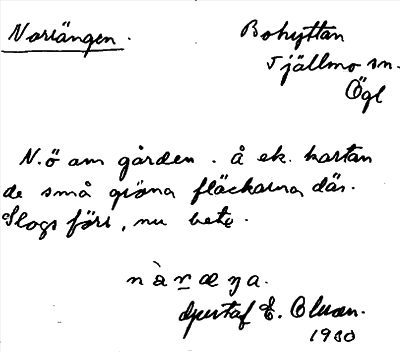 Norrängen.
Bohyttan
Tjällmo sn.
Ögl
N.ö om gården. å ek. kartan
de små gröna fläckarna där.
Slogs förr, nu bete.
Gustaf E. Olsson.
1980